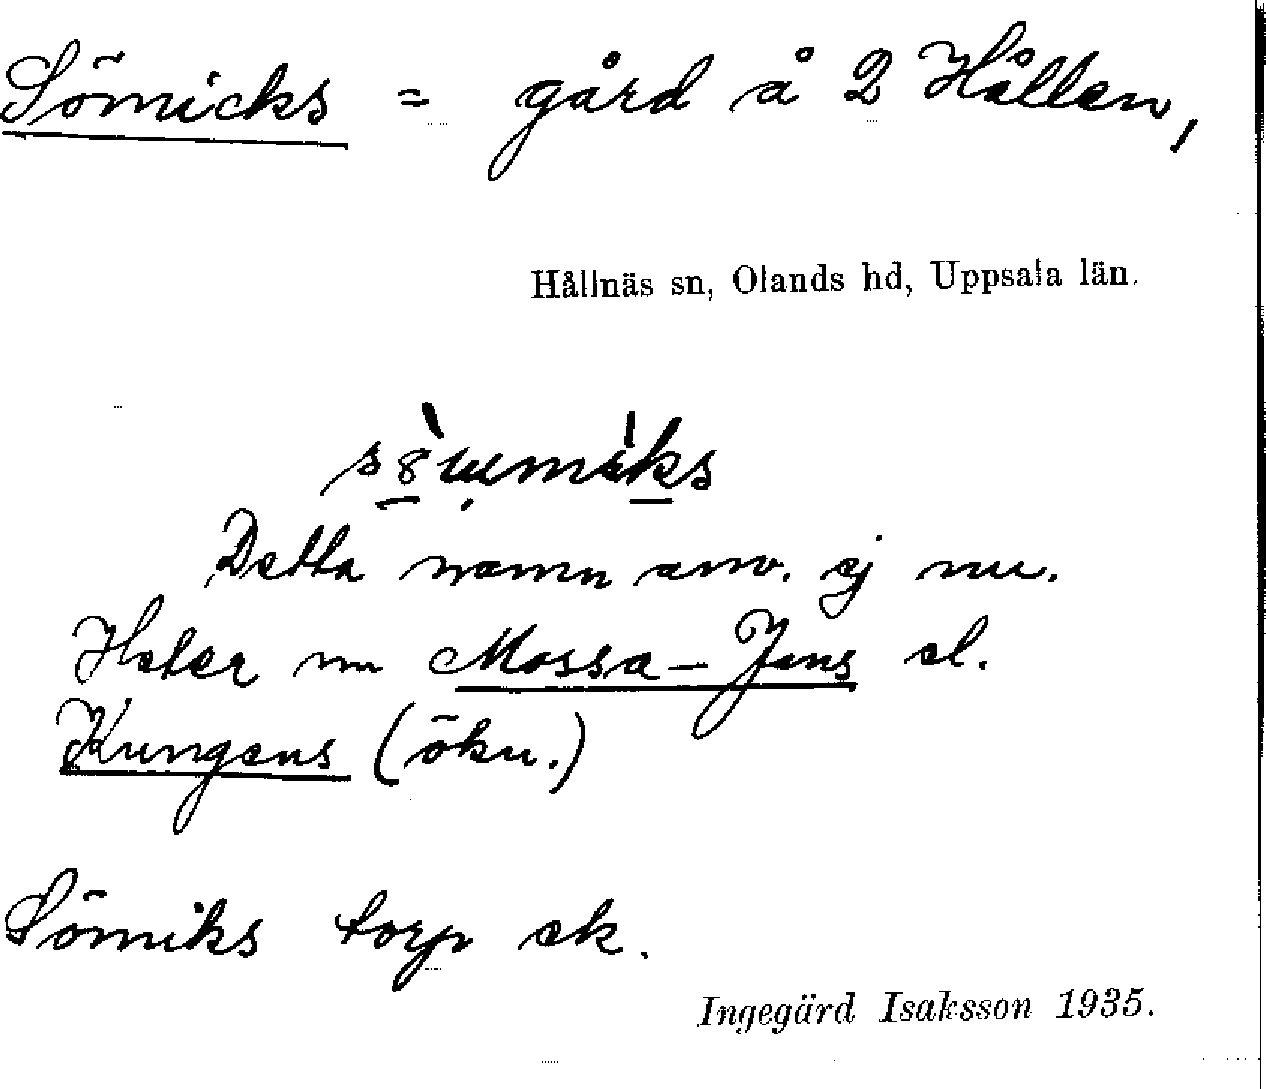 Sömicks = gård å 2 Hållen,
Hållnäs sn, Olands hd, Uppsala län.
Detta namn anv. ej nu.
Heter nu Mossa-Jens el.
Kungens (ökn.)
Sömiks torp ek.
Ingegärd Isaksson 1935.